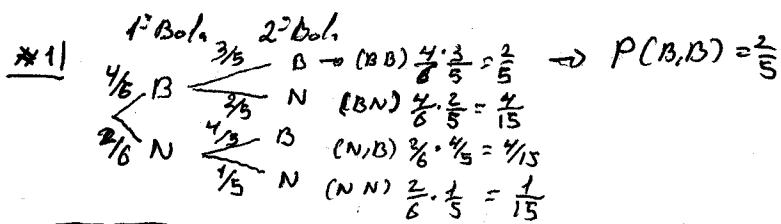 1ª Bola 2ª Bola
*1|
4/6 B 3/5 B → (BB) 4/6 · 3/5 = 2/5 → P(B,B) = 2/5
2/5 N (BN) 4/6 · 2/5 = 4/15
2/6 N 4/5 B (N,B) 2/6 · 4/5 = 4/15
1/5 N (NN) 2/6 · 1/5 = 1/15